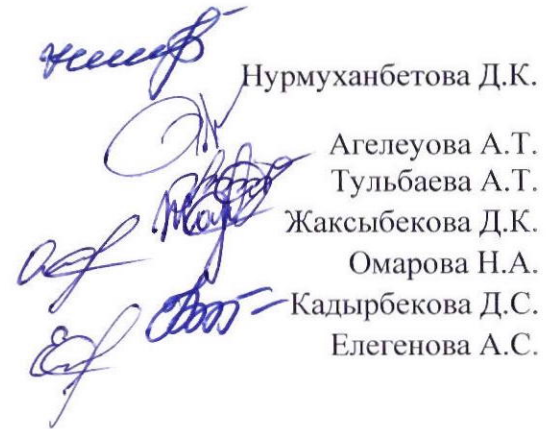 Нурмуханбетова Д.К.
Агелеуова А.Т.
Тульбаева А.Т.
Жаксыбекова Д.К.
Омарова Н.А.
Кадырбекова Д.С.
Елегенова А.С.